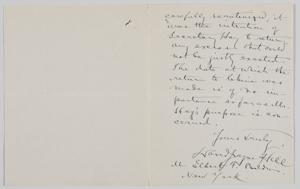 carefully scrutinized, it
was the intention of
Secretary Hay to return
any excess that could
not be justly exacted.
The date at which the
return to China was
made is of no im-
portance so far as Mr.
Hay's purpose is con-
cerned.
Yours truly,
David Jayne Hill
Mr. Elbert F. Baldwin
New York